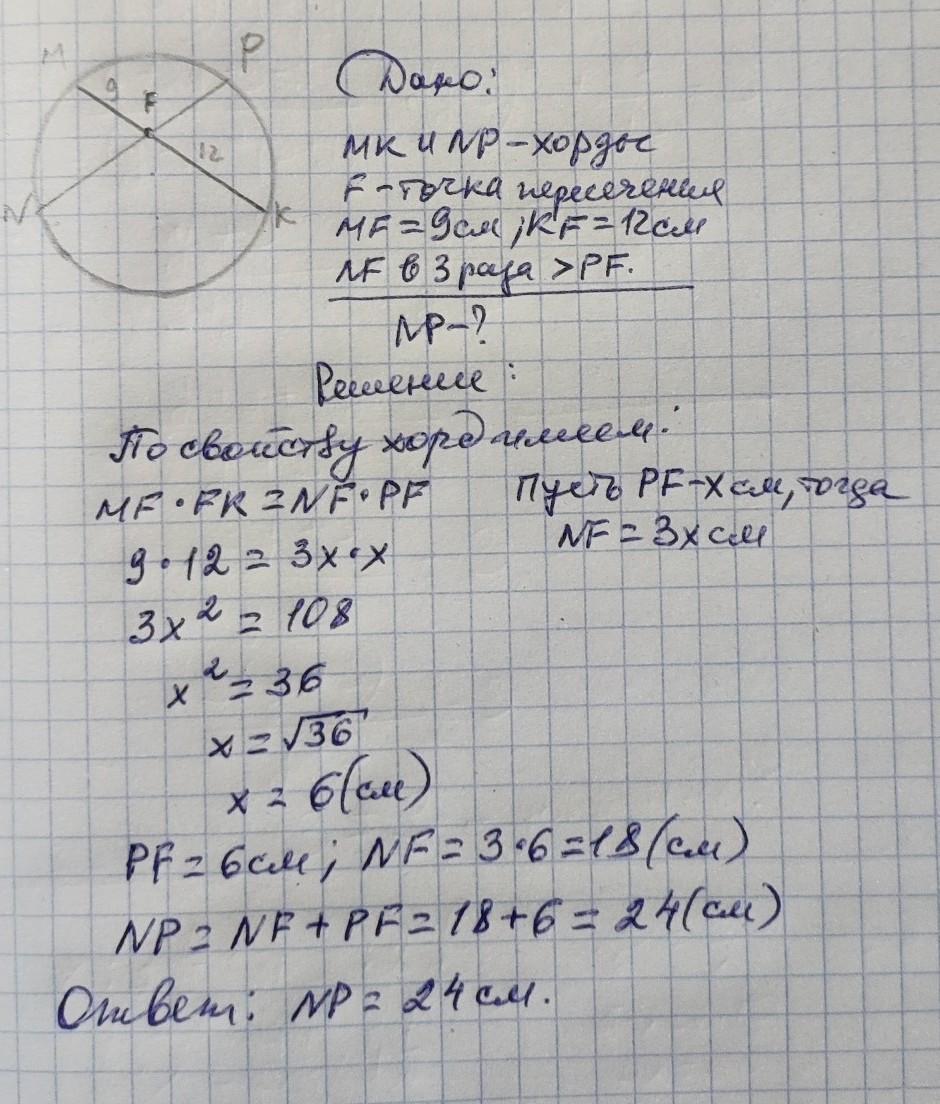 M
P
9
F
12
N
K
Дано:
MK и NP – хорды
F – точка пересечения
MF = 9см; KF = 12см
NF в 3 раза > PF.
NP – ?
Решение:
По свойству хорд имеем:
MF · FK = NF · PF
Пусть PF – x см, тогда
NF = 3x см
9 · 12 = 3x · x
3x² = 108
x² = 36
x = √36
x = 6 (см)
PF = 6см; NF = 3 · 6 = 18 (см)
NP = NF + PF = 18 + 6 = 24 (см)
Ответ: NP = 24 см.